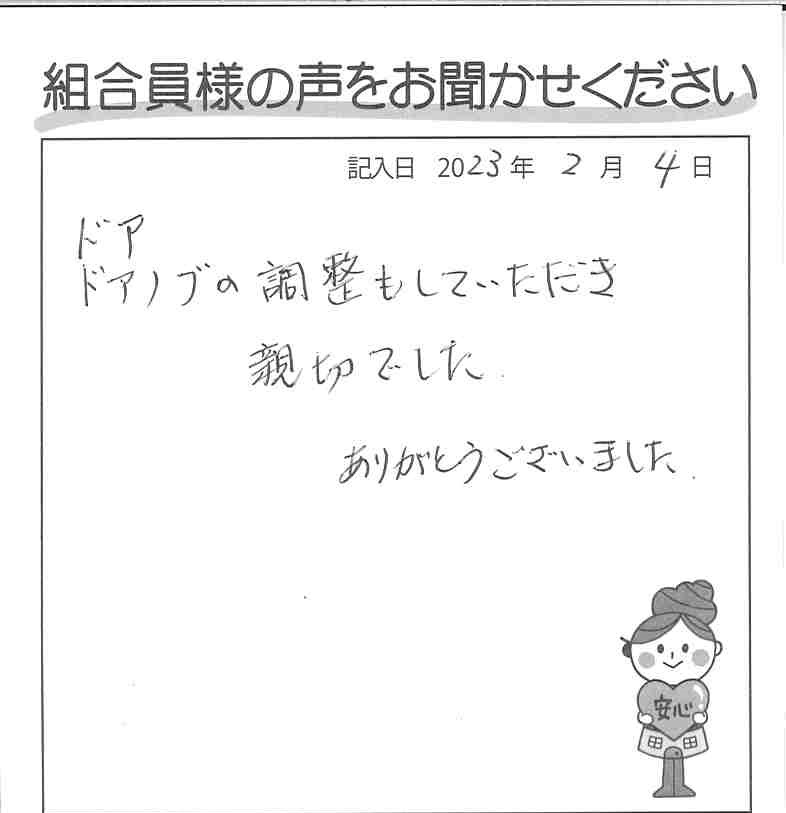 組合員様の声をお聞かせください
記入日 2023年 2月 4日
ドア
ドアノブの調整もしていただき
親切でした.
ありがとうございました.
安心